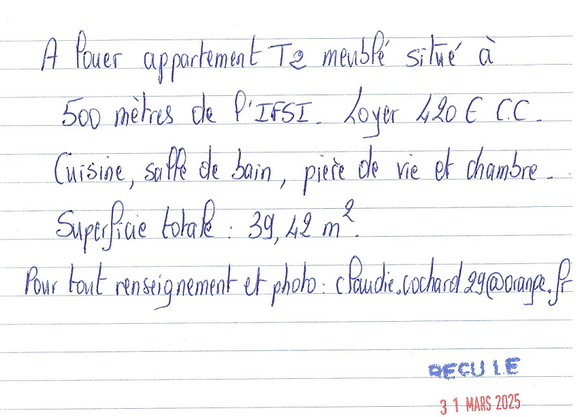 A louer appartement T2 meublé situé à
500 mètres de l'IFSI. Loyer 420 € C.C.
Cuisine, salle de bain, pièce de vie et chambre.
Superficie totale : 39,42 m².
Pour tout renseignement et photo : claudie.cochard29@orange.fr
REÇU LE
31 MARS 2025